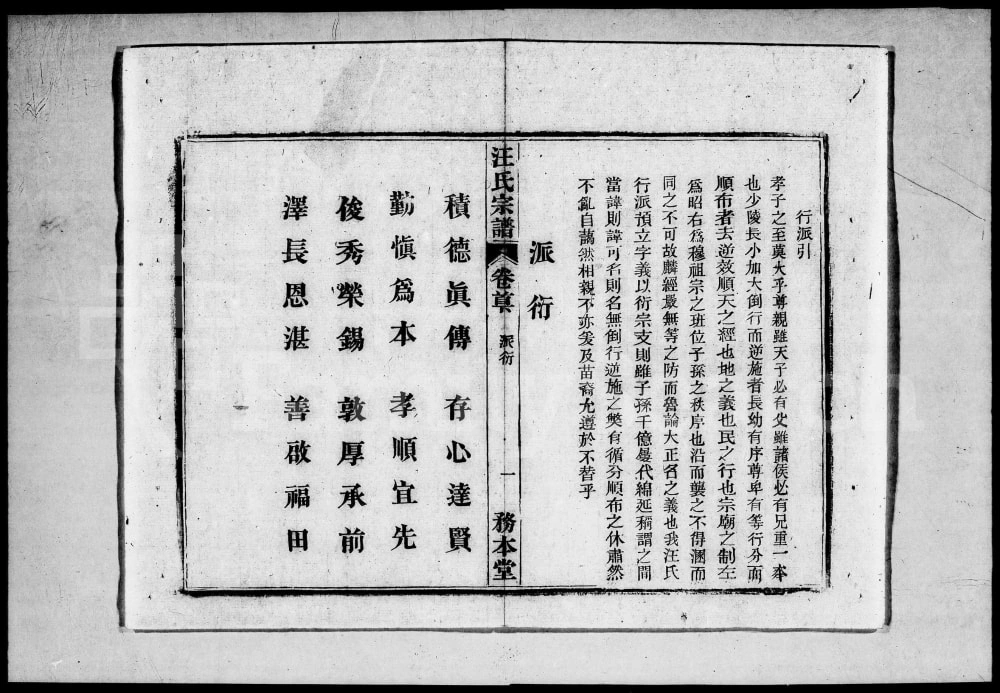 行派引
孝子之至莫大乎尊親雖天子必有父雖諸侯必有兄重一本
也少陵長小加大倒行而逆施者長幼有序尊卑有等行分而
順布者去逆效順天之經也地之義也民之行也宗廟之制左
爲昭右爲穆祖宗之班位子孫之秩序也沿而襲之不得溷而
同之不可故麟經嚴無等之防而魯論大正名之義也我汪氏
行派預立字義以衍宗支則雖子孫千億屢代綿延稱謂之間
當諱則諱可名則名無倒行逆施之獘有循分順布之休肅然
不亂自藹然相親不亦美及苗裔允遵於不替乎
派衍
汪氏宗譜 卷首 派衍 一 務本堂
積德眞傳 存心達賢
勤愼爲本 孝順宜先
俊秀榮錫 敦厚承前
澤長恩湛 善啟福田